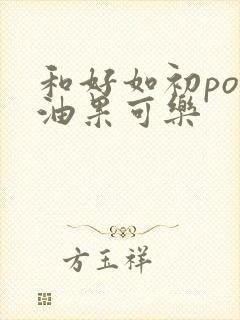 和好如初po
油果可樂
方玉祥